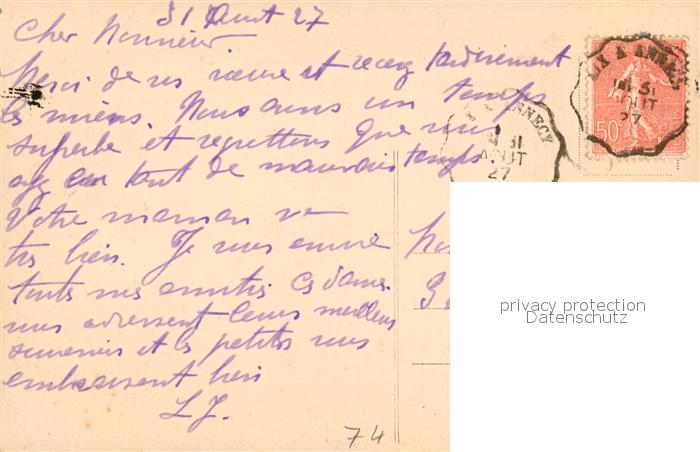 31 Aout 27
Cher Monsieur
Merci de vos vœux et recevez tardivement
les miens. Nous avons un temps
superbe et regrettons que vous
ayez eu tant de mauvais temps.
Votre maman va
très bien. Je vous envoie
toutes mes amitiés. Ces dames
vous adressent leurs meilleurs
souvenirs et les petites vous
embrassent bien
L.J.
74
ANNECY
31
AOUT
27
50c
31
AOUT
27
privacy protection
Datenschutz